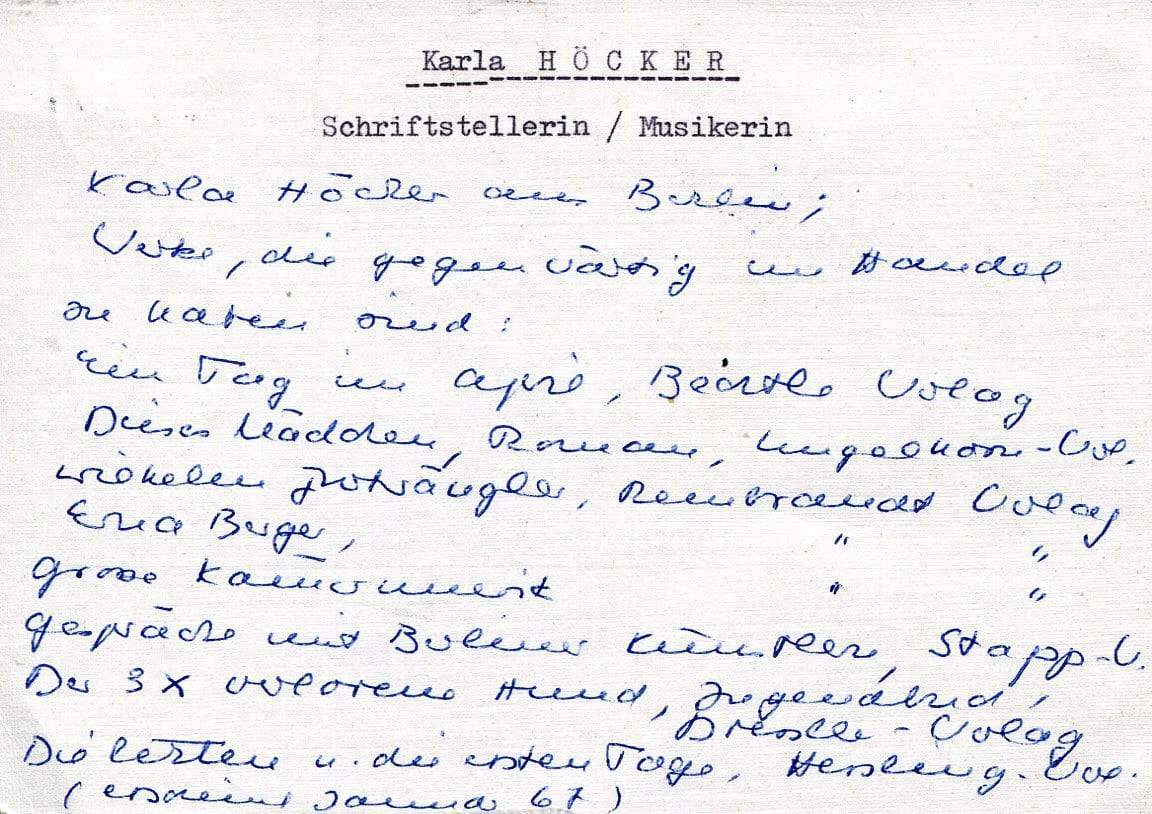 Karla HÖCKER
Schriftstellerin / Musikerin
Karla Höcker aus Berlin;
Werke, die gegenwärtig im Handel
zu haben sind:
Ein Tag im April, Bechtle Verlag
Dieses Mädchen, Roman, Engelhorn-Verl.
Wilhelm Furtwängler, Rembrandt Verlag
Erna Berger, " "
Grosse Kammermusik " "
Gespräche mit Berliner Künstlern, Stapp-V.
Der 3 x verlorene Hund, Jugendbuch,
Dressler-Verlag
Die letzten u. die ersten Tage, Hessling-Ver.
(erscheint Januar 67)